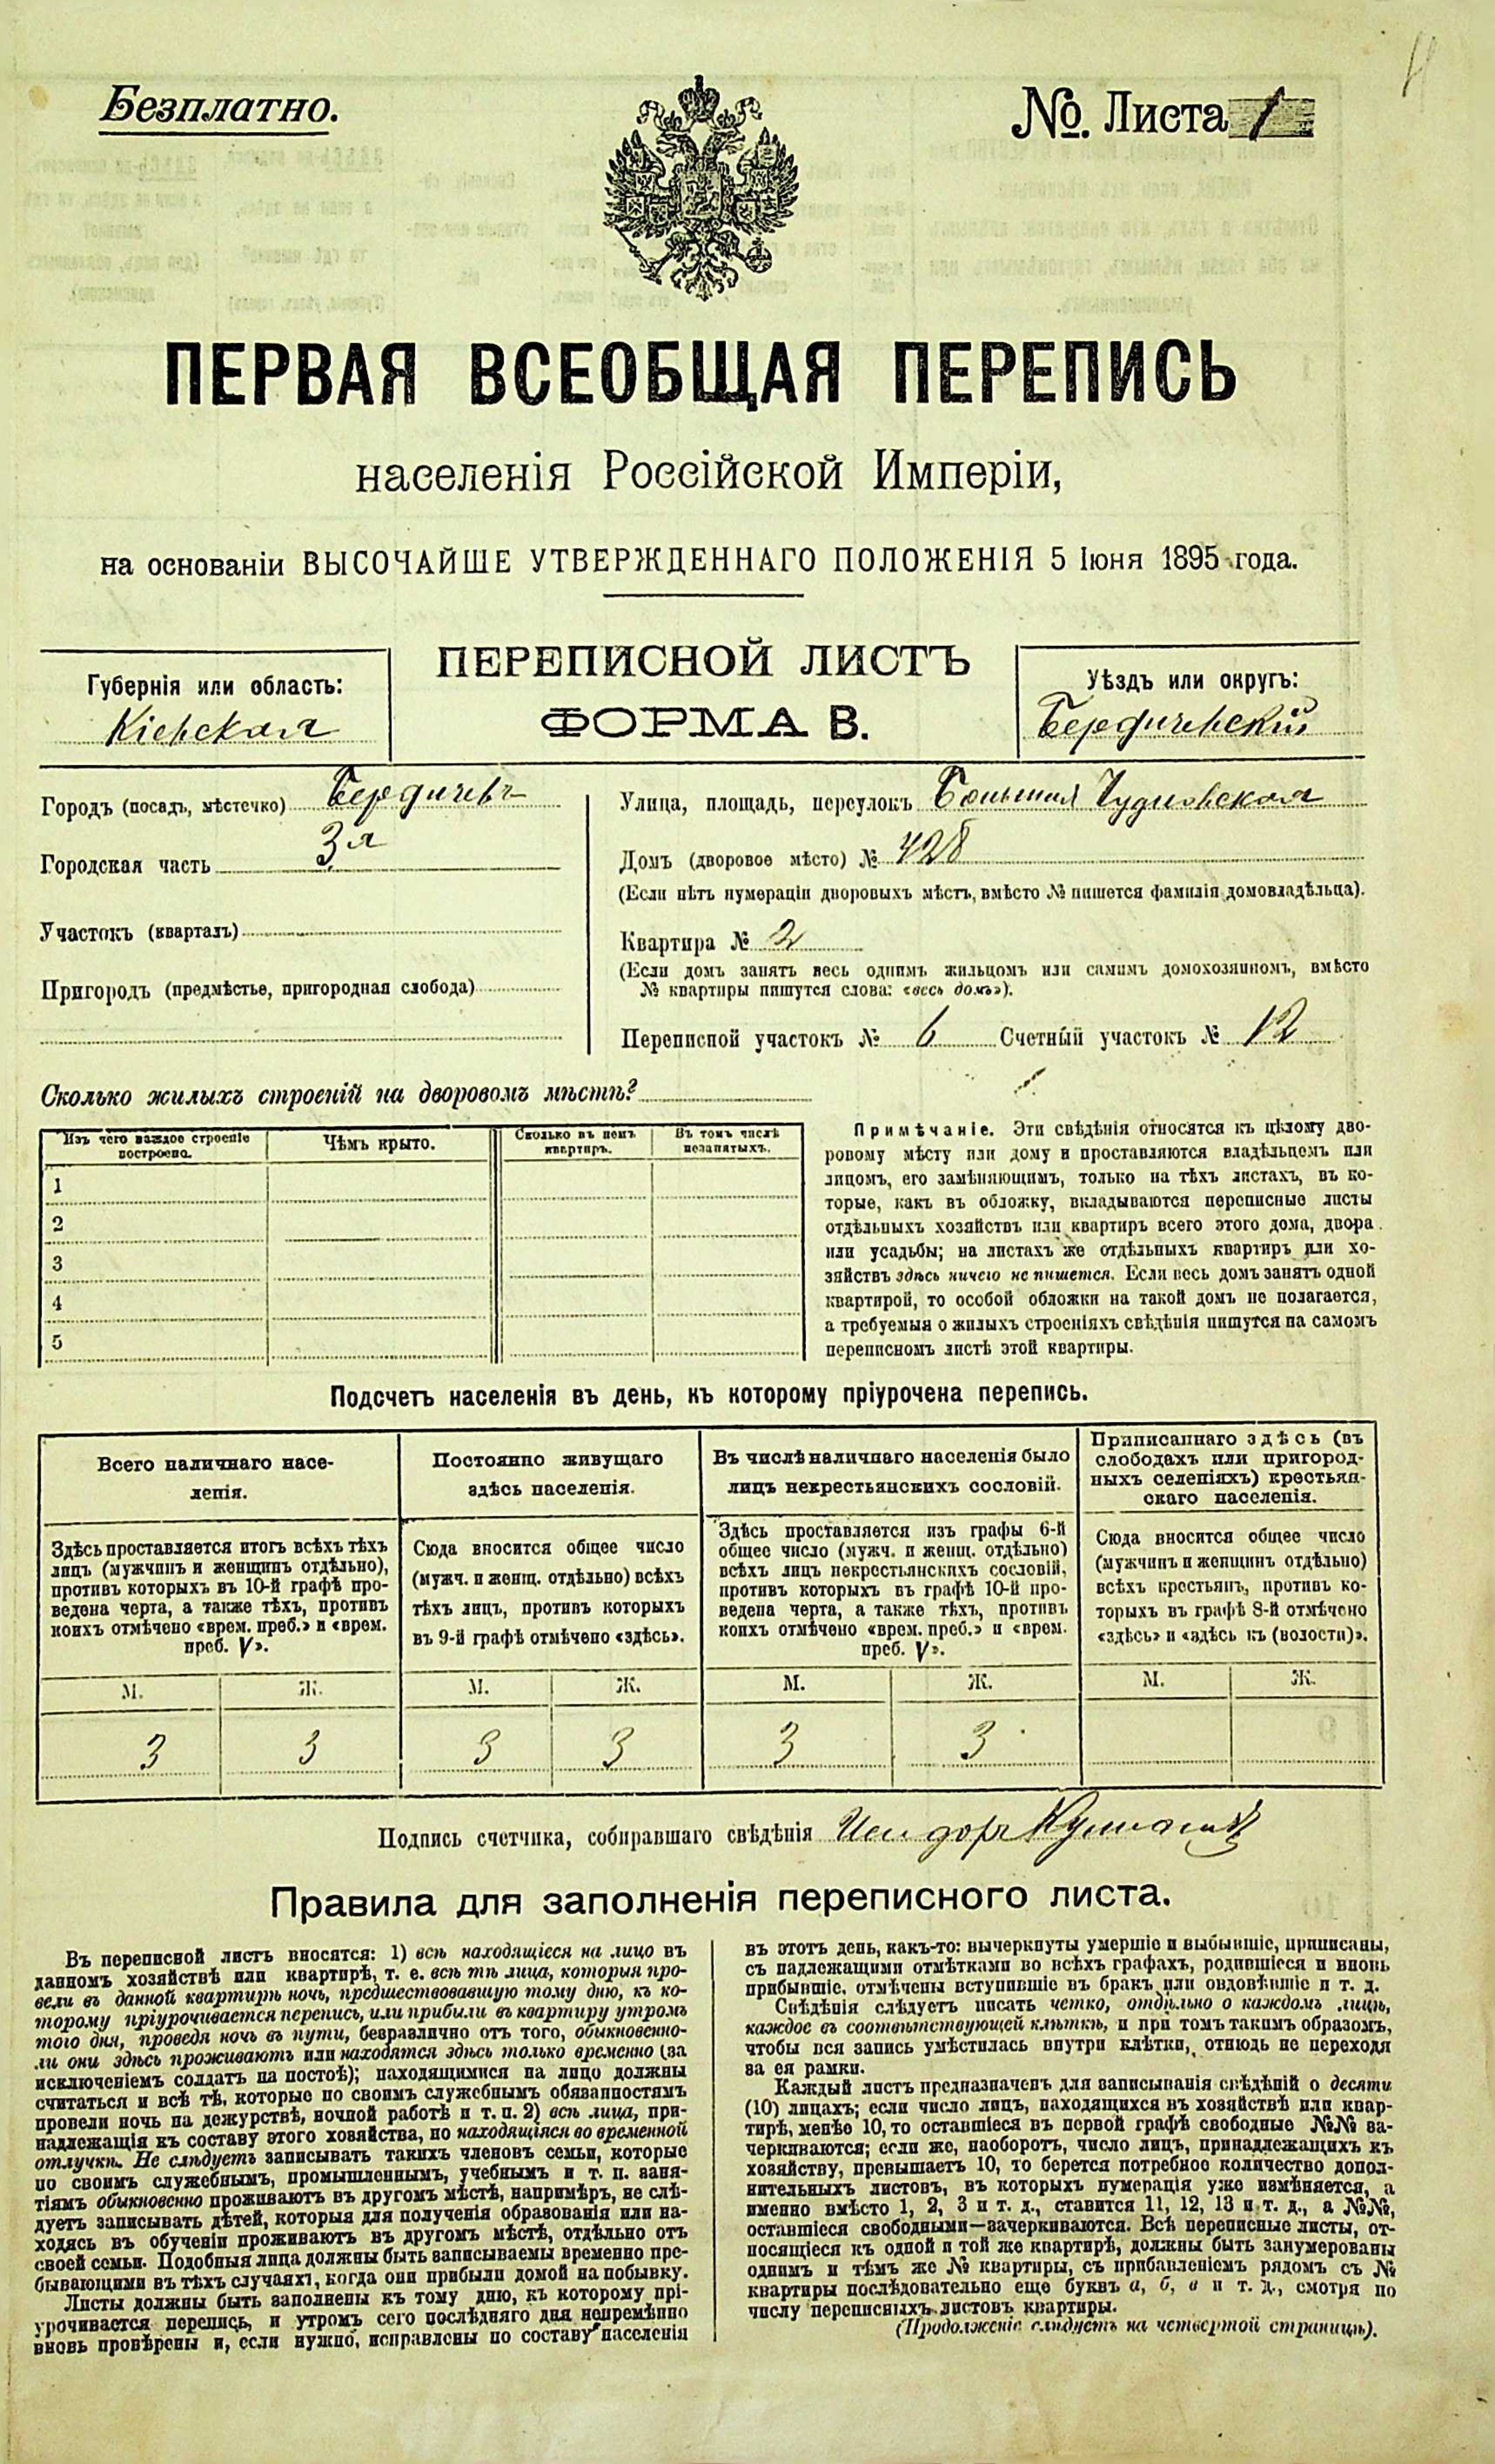 Безплатно.
№. Листа 1
ПЕРВАЯ ВСЕОБЩАЯ ПЕРЕПИСЬ
населенія Россійской Имперіи,
на основаніи ВЫСОЧАЙШЕ УТВЕРЖДЕННАГО ПОЛОЖЕНІЯ 5 Іюня 1895 года.
ПЕРЕПИСНОЙ ЛИСТЪ
ФОРМА В.
Губернія или область:
Кіевская
Уѣздъ или округъ:
Бердичевскій
Городъ (посадъ, мѣстечко) Бердичевъ
Городская часть 3я
Участокъ (кварталъ)
Пригородъ (предмѣстье, пригородная слобода)
Улица, площадь, переулокъ Большая Чудновская
Домъ (дворовое мѣсто) № 428
(Если нѣтъ нумераціи дворовыхъ мѣстъ, вмѣсто № пишется фамилія домовладѣльца).
Квартира № 2
(Если домъ занятъ весь однимъ жильцомъ или самимъ домохозяиномъ, вмѣсто
№ квартиры пишутся слова: «весь домъ»).
Переписной участокъ № 6 Счетный участокъ № 12
Сколько жилыхъ строеній на дворовомъ мѣстѣ?
Изъ чего каждое строеніе
построено.
Чѣмъ крыто.
Сколько въ немъ
квартиръ.
Въ томъ числѣ
незанятыхъ.
1
2
3
4
5
Примѣчаніе. Эти свѣдѣнія относятся къ цѣлому дво-
ровому мѣсту или дому и проставляются владѣльцемъ или
лицомъ, его замѣняющимъ, только на тѣхъ листахъ, въ ко-
торые, какъ въ обложку, вкладываются переписные листы
отдѣльныхъ хозяйствъ или квартиръ всего этого дома, двора
или усадьбы; на листахъ же отдѣльныхъ квартиръ или хо-
зяйствъ здѣсь ничего не пишется. Если весь домъ занятъ одной
квартирой, то особой обложки на такой домъ не полагается,
а требуемыя о жилыхъ строеніяхъ свѣдѣнія пишутся на самомъ
переписномъ листѣ этой квартиры.
Подсчетъ населенія въ день, къ которому пріурочена перепись.
Всего наличнаго насе-
ленія.
Здѣсь проставляется итогъ всѣхъ тѣхъ
лицъ (мужчинъ и женщинъ отдѣльно),
противъ которыхъ въ 10-й графѣ про-
ведена черта, а также тѣхъ, противъ
коихъ отмѣчено «врем. преб.» и «врем.
преб. V».
Постоянно живущаго
здѣсь населенія.
Сюда вносится общее число
(мужч. и женщ. отдѣльно) всѣхъ
тѣхъ лицъ, противъ которыхъ
въ 9-й графѣ отмѣчено «здѣсь».
Въ числѣ наличнаго населенія было
лицъ некрестьянскихъ сословій.
Здѣсь проставляется изъ графы 6-й
общее число (мужч. и женщ. отдѣльно)
всѣхъ лицъ некрестьянскихъ сословій,
противъ которыхъ въ графѣ 10-й про-
ведена черта, а также тѣхъ, противъ
коихъ отмѣчено «врем. преб.» и «врем.
преб. V».
Приписаннаго здѣсь (въ
слободахъ или пригород-
ныхъ селеніяхъ) крестьян-
скаго населенія.
Сюда вносится общее число
(мужчинъ и женщинъ отдѣльно)
всѣхъ крестьянъ, противъ ко-
торыхъ въ графѣ 8-й отмѣчено
«здѣсь» и «здѣсь къ (волости)».
М. Ж. М. Ж. М. Ж. М. Ж.
3 3 3 3 3 3
Подпись счетчика, собиравшаго свѣдѣнія Исидоръ
Правила для заполненія переписного листа.
Въ переписной листъ вносятся: 1) всѣ находящіеся на лицо въ
данномъ хозяйствѣ или квартирѣ, т. е. всѣ тѣ лица, которыя про-
вели въ данной квартирѣ ночь, предшествовавшую тому дню, къ ко-
торому пріурочивается перепись, или прибыли въ квартиру утромъ
того дня, проведя ночь въ пути, безразлично отъ того, обыкновенно-
ли они здѣсь проживаютъ или находятся здѣсь только временно (за
исключеніемъ солдатъ на постоѣ); находящимися на лицо должны
считаться и всѣ тѣ, которые по своимъ служебнымъ обязанностямъ
провели ночь на дежурствѣ, ночной работѣ и т. п. 2) всѣ лица, при-
надлежащія къ составу этого хозяйства, но находящіяся во временной
отлучкѣ. Не слѣдуетъ записывать такихъ членовъ семьи, которые
по своимъ служебнымъ, промышленнымъ, учебнымъ и т. п. заня-
тіямъ обыкновенно проживаютъ въ другомъ мѣстѣ, напримѣръ, не слѣ-
дуетъ записывать дѣтей, которыя для полученія образованія или на-
ходясь въ обученіи проживаютъ въ другомъ мѣстѣ, отдѣльно отъ
своей семьи. Подобныя лица должны быть записываемы временно пре-
бывающими въ тѣхъ случаяхъ, когда они прибыли домой на побывку.
Листы должны быть заполнены къ тому дню, къ которому прі-
урочивается перепись, и утромъ сего послѣдняго дня непремѣнно
вновь провѣрены и, если нужно, исправлены по составу населенія
въ этотъ день, какъ-то: вычеркнуты умершіе и выбывшіе, приписаны,
съ надлежащими отмѣтками во всѣхъ графахъ, родившіеся и вновь
прибывшіе, отмѣчены вступившіе въ бракъ или овдовѣвшіе и т. д.
Свѣдѣнія слѣдуетъ писать четко, отдѣльно о каждомъ лицѣ,
каждое въ соотвѣтствующей клѣткѣ, и при томъ такимъ образомъ,
чтобы вся запись умѣстилась внутри клѣтки, отнюдь не переходя
за ея рамки.
Каждый листъ предназначенъ для записыванія свѣдѣній о десяти
(10) лицахъ; если число лицъ, находящихся въ хозяйствѣ или квар-
тирѣ, менѣе 10, то оставшіеся въ первой графѣ свободные №№ за-
черкиваются; если же, наоборотъ, число лицъ, принадлежащихъ къ
хозяйству, превышаетъ 10, то берется потребное количество допол-
нительныхъ листовъ, въ которыхъ нумерація уже измѣняется, а
именно вмѣсто 1, 2, 3 и т. д., ставится 11, 12, 13 и т. д., а №№,
оставшіеся свободными—зачеркиваются. Всѣ переписные листы, от-
носящіеся къ одной и той же квартирѣ, должны быть занумерованы
однимъ и тѣмъ же № квартиры, съ прибавленіемъ рядомъ съ №
квартиры послѣдовательно еще буквъ а, б, в и т. д., смотря по
числу переписныхъ листовъ квартиры.
(Продолженіе слѣдуетъ на четвертой страницѣ).